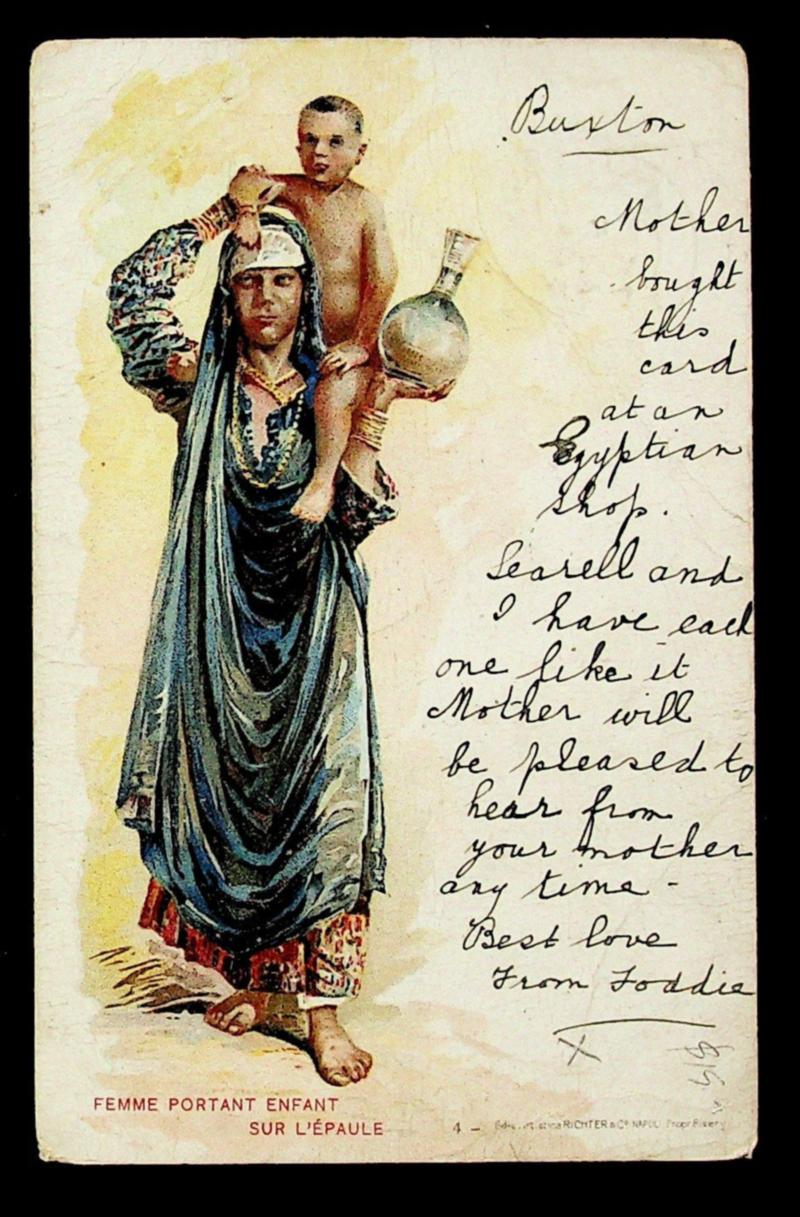 Buxton
Mother
bought
this
card
at an
Egyptian
shop.
Searell and
I have each
one like it
Mother will
be pleased to
hear from
your mother
any time -
Best love
From Toddie
X
FEMME PORTANT ENFANT
SUR L'ÉPAULE
4 - RICHTER & Cº NAPOLI